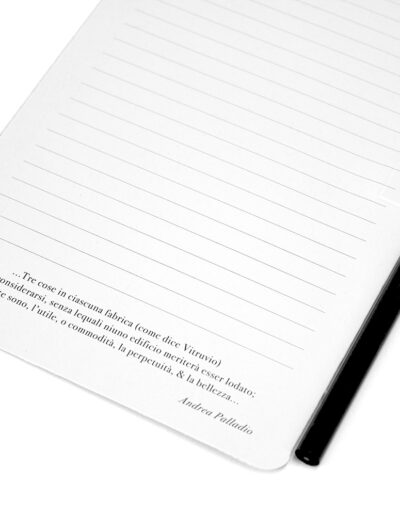 ...Tre cose in ciascuna fabrica (come dice Vitruvio)
considerarsi, senza lequali niuno edificio meriterà esser lodato;
sono, l'utile, o commodità, la perpetuità, & la bellezza...
Andrea Palladio